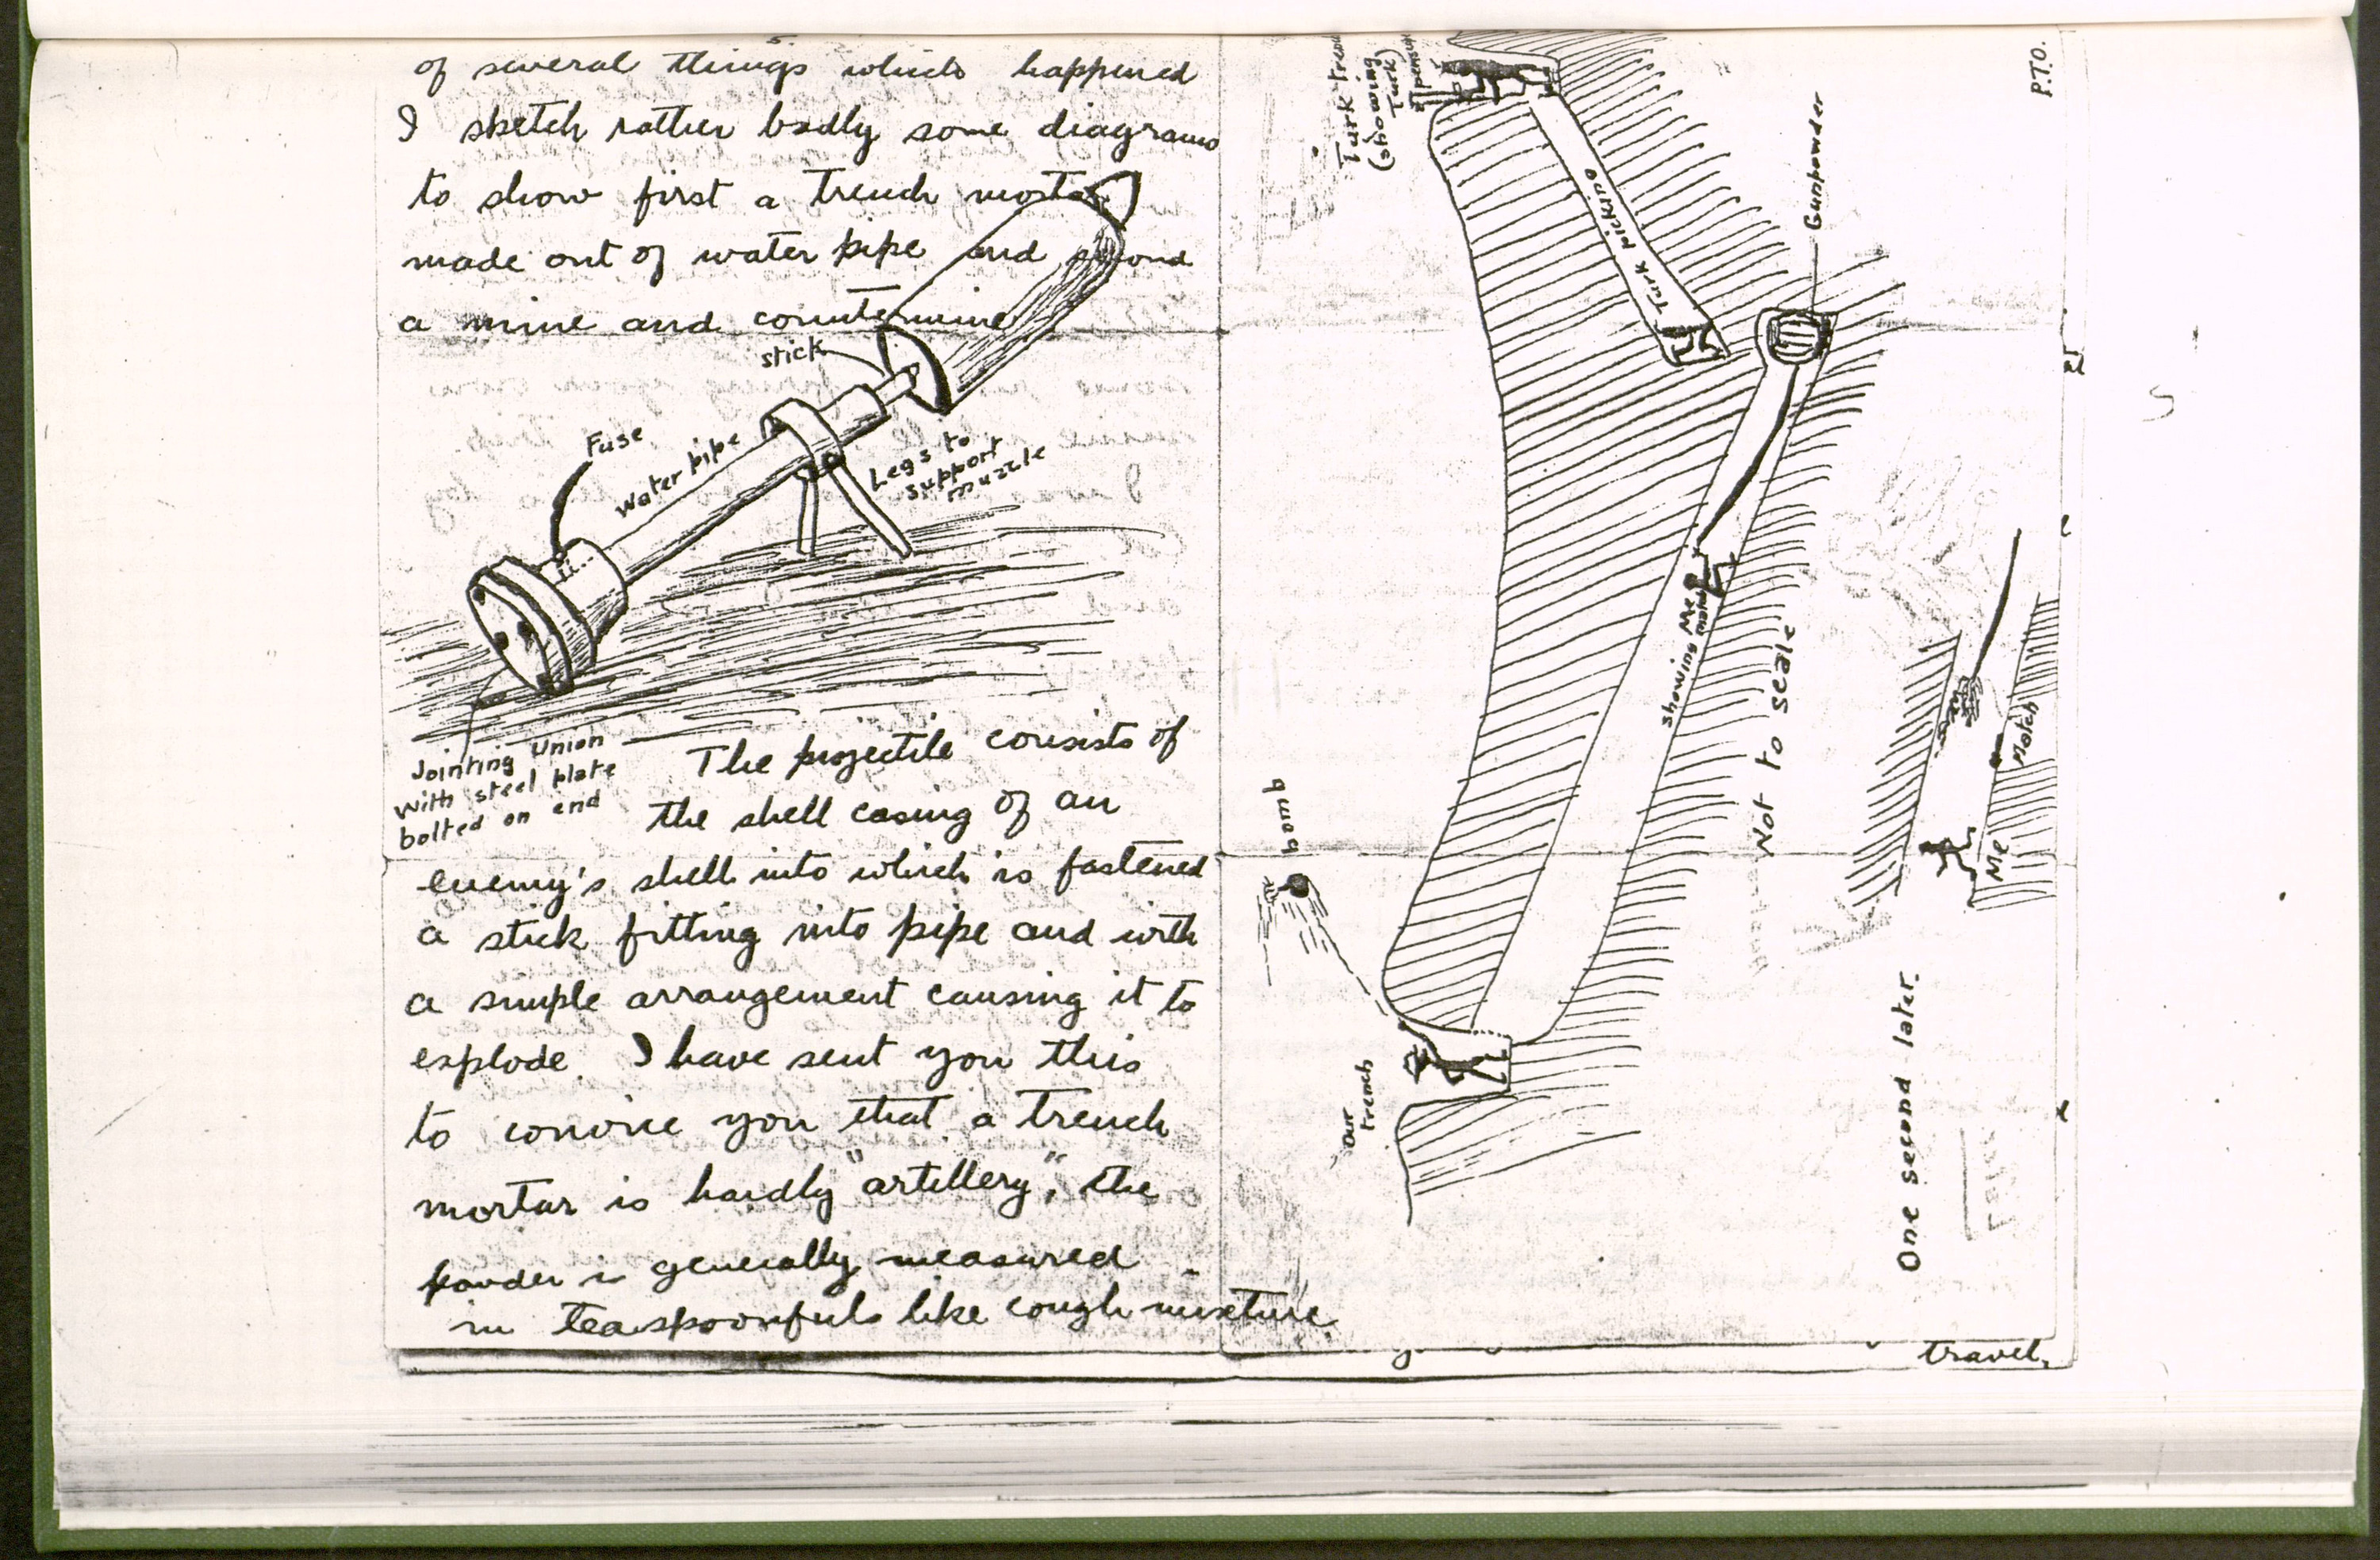 5.
of several things which happened
I sketch rather badly some diagrams
to show first a trench mortar
made out of water pipe and second
a mine and countermine
stick
Fuse
water pipe
Legs to
support
muzzle
Jointing Union
with steel plate
bolted on end
The projectile consists of
the shell casing of an
enemy's shell into which is fastened
a stick fitting into pipe and with
a simple arrangement causing it to
explode. I have sent you this
to convince you that a trench
mortar is hardly "artillery", the
powder is generally measured
in teaspoonfuls like cough mixture
Turk
(showing
Turk)
Turk picking
Gunpowder
P.T.O.
showing Me
Not to scale
bomb
our
trench
Match
Me
One second later.
travel.